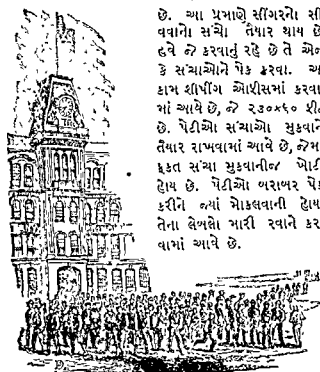 છે. આ પ્રમાણે સીંગરનો સી
વવાનો સંચો તૈયાર થાય છે
હવે જે કરવાનું રહે છે તે એજ
કે સંચાઓને પેક કરવા. આ
કામ શીપીંગ ઓફીસમાં કરવા
માં આવે છે, જે ૨૩૦×૬૦ ફીટ
છે. પેટીઓ સંચાઓ મુકવાને
તૈયાર રાખવામાં આવે છે, જેમાં
ફકત સંચા મુકવાનીજ ખોટી
હોય છે. પેટીઓ બરાબર પેક
કરીને જ્યાં મોકલવાની હોય
તેના લેબલો મારી રવાને કર
વામાં આવે છે.